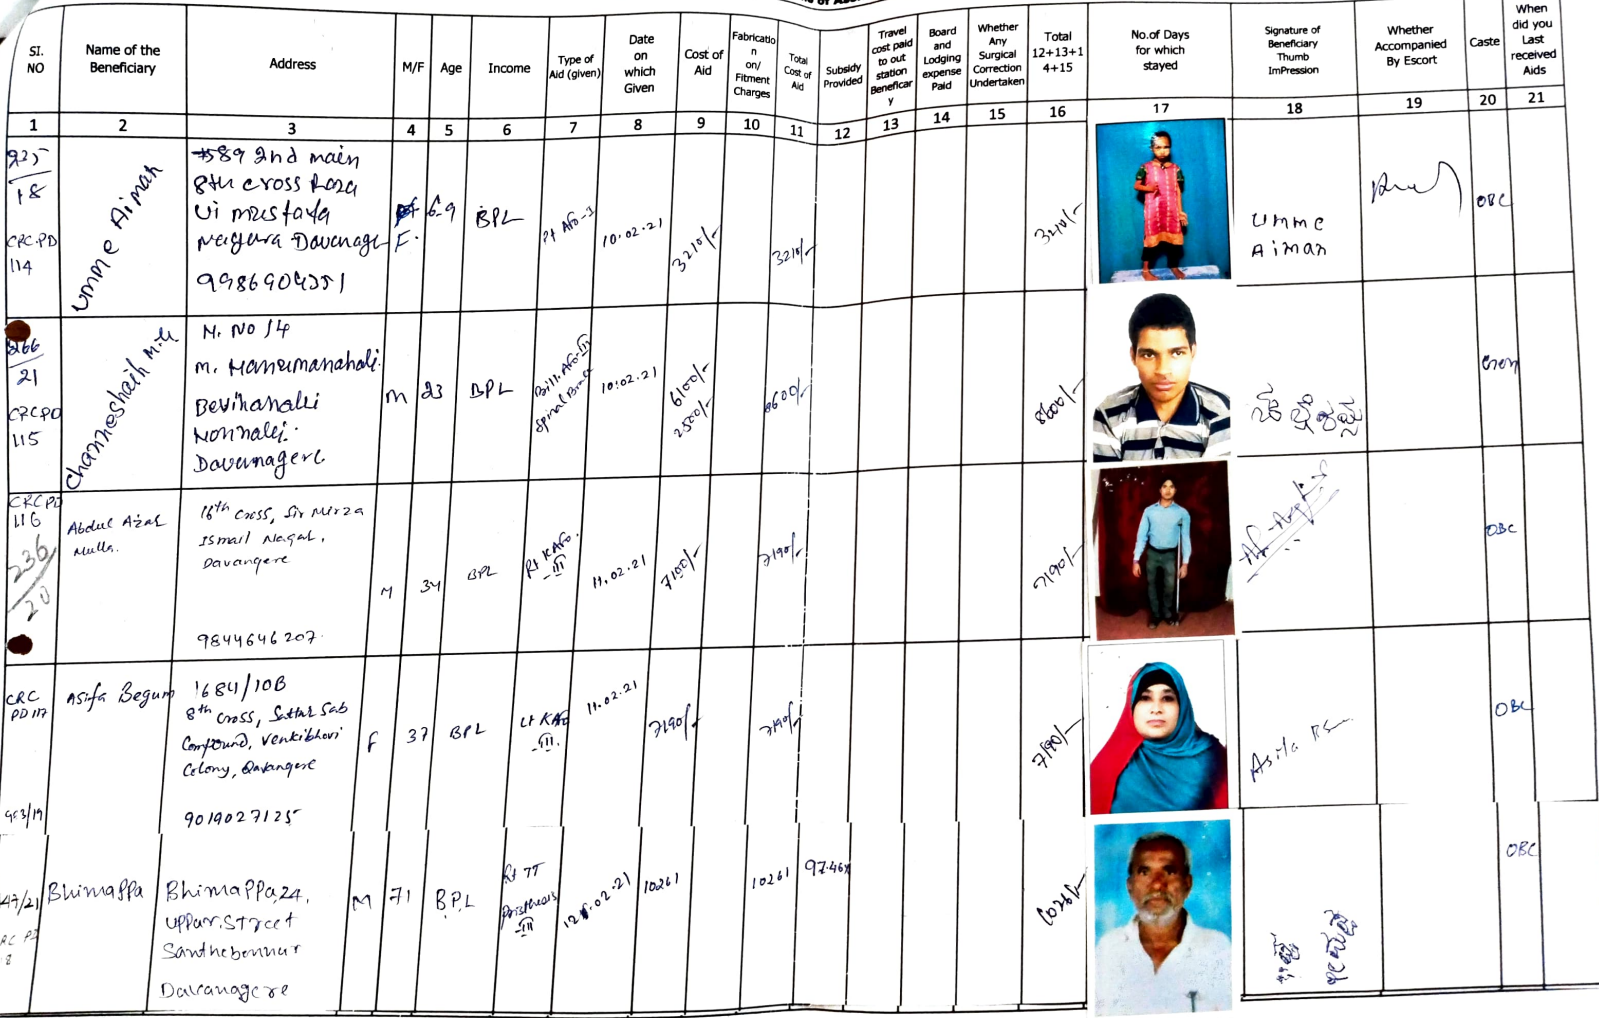 SI. NO
Name of the Beneficiary
Address
M/F
Age
Income
Type of Aid (given)
Date on which Given
Cost of Aid
Fabricatio n on/ Fitment Charges
Total Cost of Aid
Subsidy Provided
Travel cost paid to out station Beneficar y
Board and Lodging expense Paid
Whether Any Surgical Correction Undertaken
Total 12+13+1 4+15
No.of Days for which stayed
Signature of Beneficiary Thumb ImPression
Whether Accompanied By Escort
Caste
When did you Last received Aids
1 2 3 4 5 6 7 8 9 10 11 12 13 14 15 16 17 18 19 20 21
18
CRC.PD
114
Umme Aiman
#589 2nd main
8th cross Raza
Ul mustafa
Nagara Davanage
F.
6-9
BPL
10.02.21
3210/-
3210/-
3210/-
Umme
Aiman
OBC
266
21
CRCPD
115
H. NO 14
Davanagere
M
23
BPL
Spinal Brace
10.02.21
6100/-
2500/-
8600/-
8600/-
Gen
CRCPD
116
236
20
Abdul Azar
Mulla.
16th Cross, Sir Mirza
Ismail Nagar,
Davangere
9844646207.
M
34
BPL
Rt KAFO.
-III
11.02.21
7190/-
7190/-
7190/-
OBC
CRC
PD 117
Asifa Begum
1684/10B
8th Cross, Sattar Sab
Compound, Venkibhovi
Colony, Davangere
9019027125
F
37
BPL
Lt KAFO
-III.
11.02.21
7190/-
7190/-
7190/-
OBC
47/21
Bhimappa
Bhimappa, 24,
Uppar.Street
Santhebennur
Davanagere
M
71
B.P.L
Rt TT
Prosthesis
-III
10261
10261
OBC